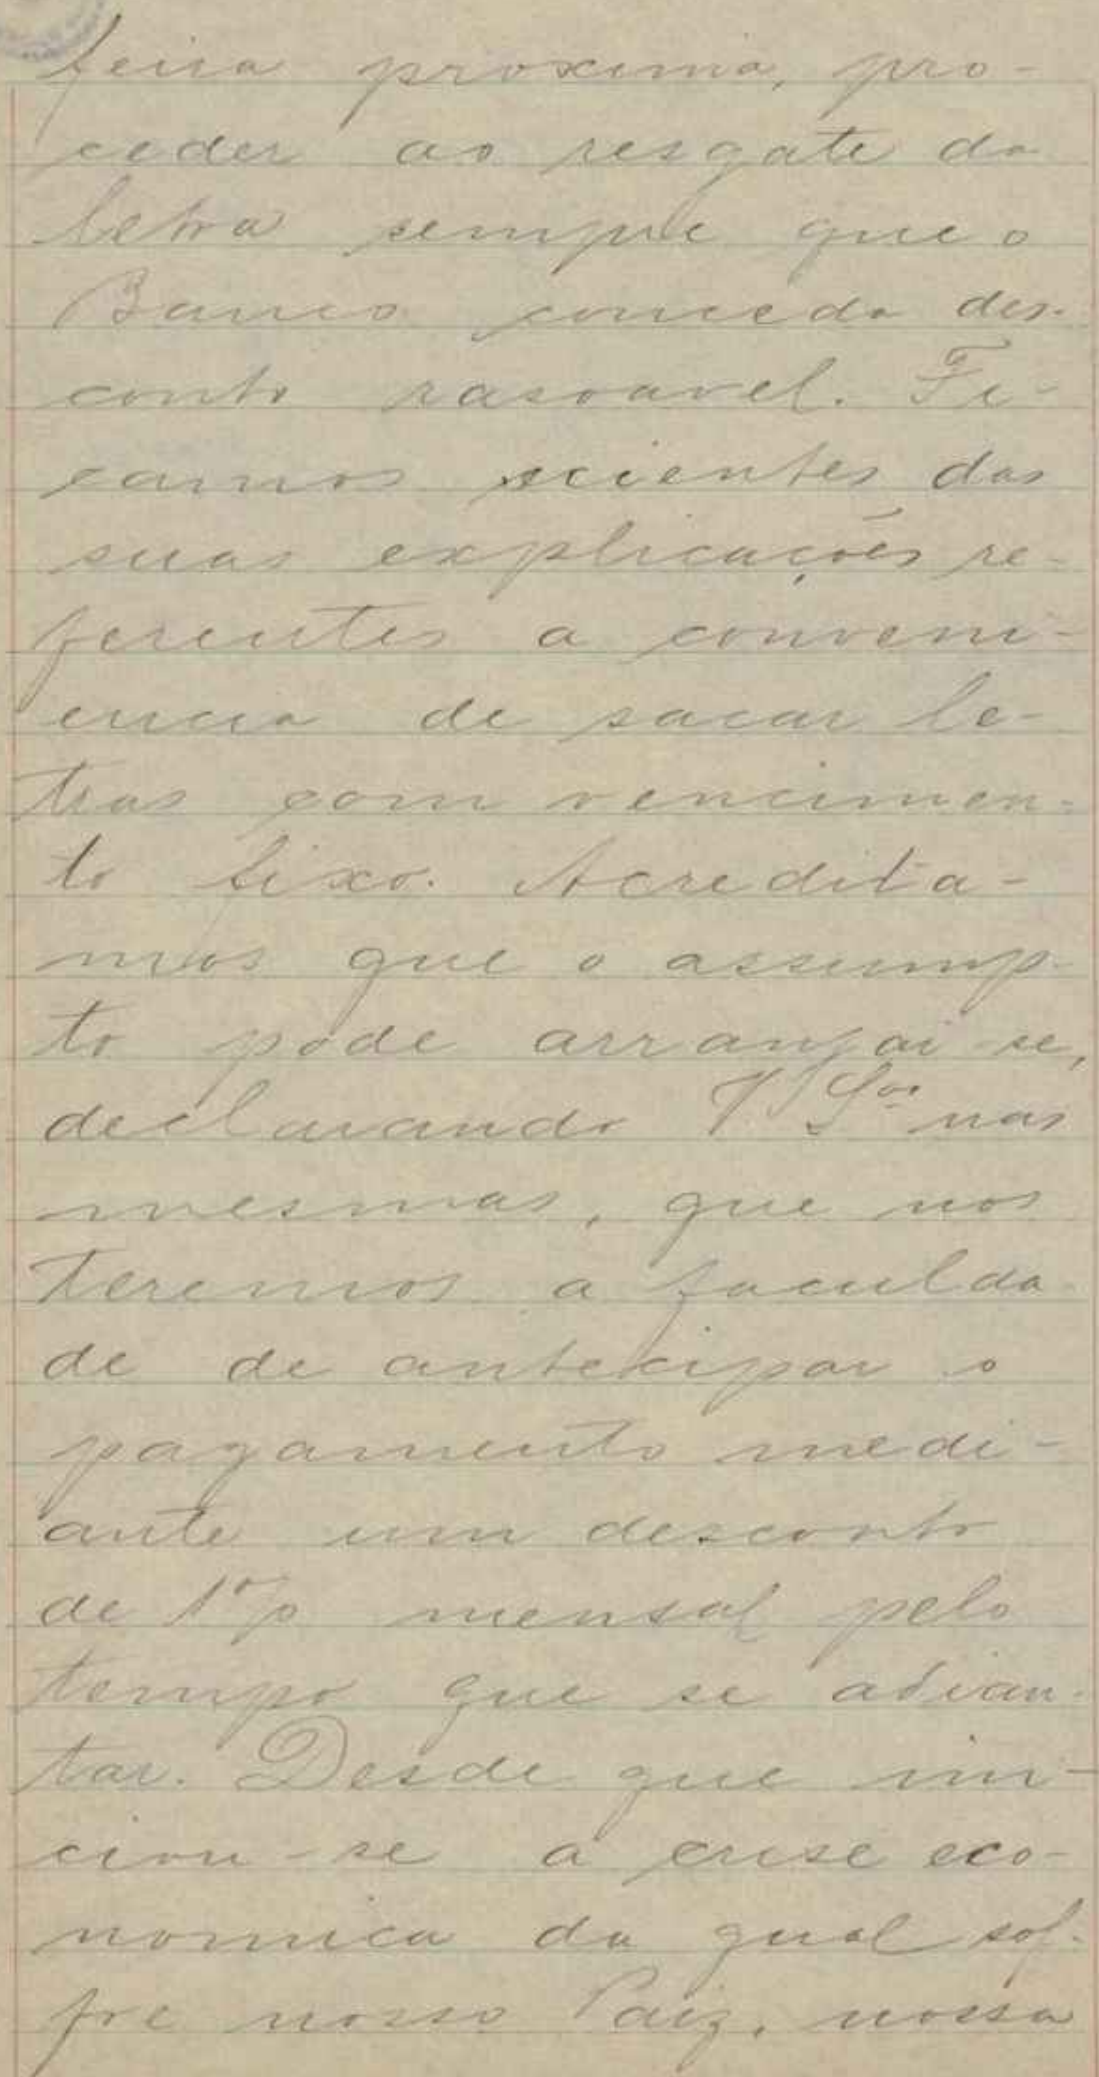 feira proxima, pro-
ceder ao resgate da
letra sempre que o
Banco conceda des-
conto rasoavel. Fi-
camos scientes das
suas explicações re-
ferentes a conveni-
encia de sacar le-
tras com vencimen-
to fixo. Acredita-
mos que o assump-
to pode arranjar-se,
declarando V. Sas nas
mesmas, que nos
teremos a faculda
de de antecipar o
pagamento medi-
ante um desconto
de 1% mensal pelo
tempo que se adian-
tar. Desde que ini-
ciou-se a crise eco-
nomica da qual sof-
fre nosso Paiz, nossa